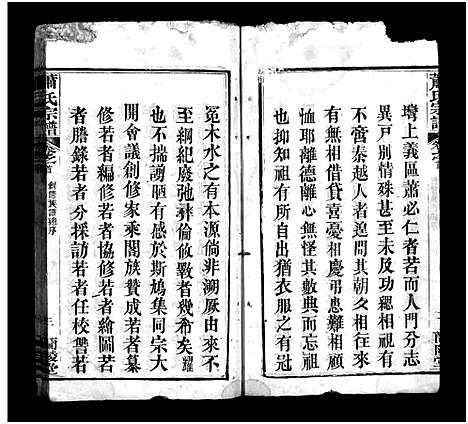 蕭氏宗譜
墫上義區蕭必仁者若而人門分志
異戶別情殊甚至未及功緦相視有
不啻秦越人者問其朝久相徃來
有無相借貸喜憂相慶弔患難相顧
恤耶離德離心無怪其數典而忘祖
也抑知祖有所自出猶衣服之有冠
冕木水之有本源倘非溯厥由來不
至綱紀廢弛彝倫攸斁者幾希矣耀
也不揣謭陋有感於斯鳩集同宗大
開會議創修家乘闔族贊成若者纂
修若者編修若者協修若者繪圖若
者謄錄若者分採訪若者任校讐若
蕭氏宗譜
卷之首
創修族譜總序
三
蘭陵堂